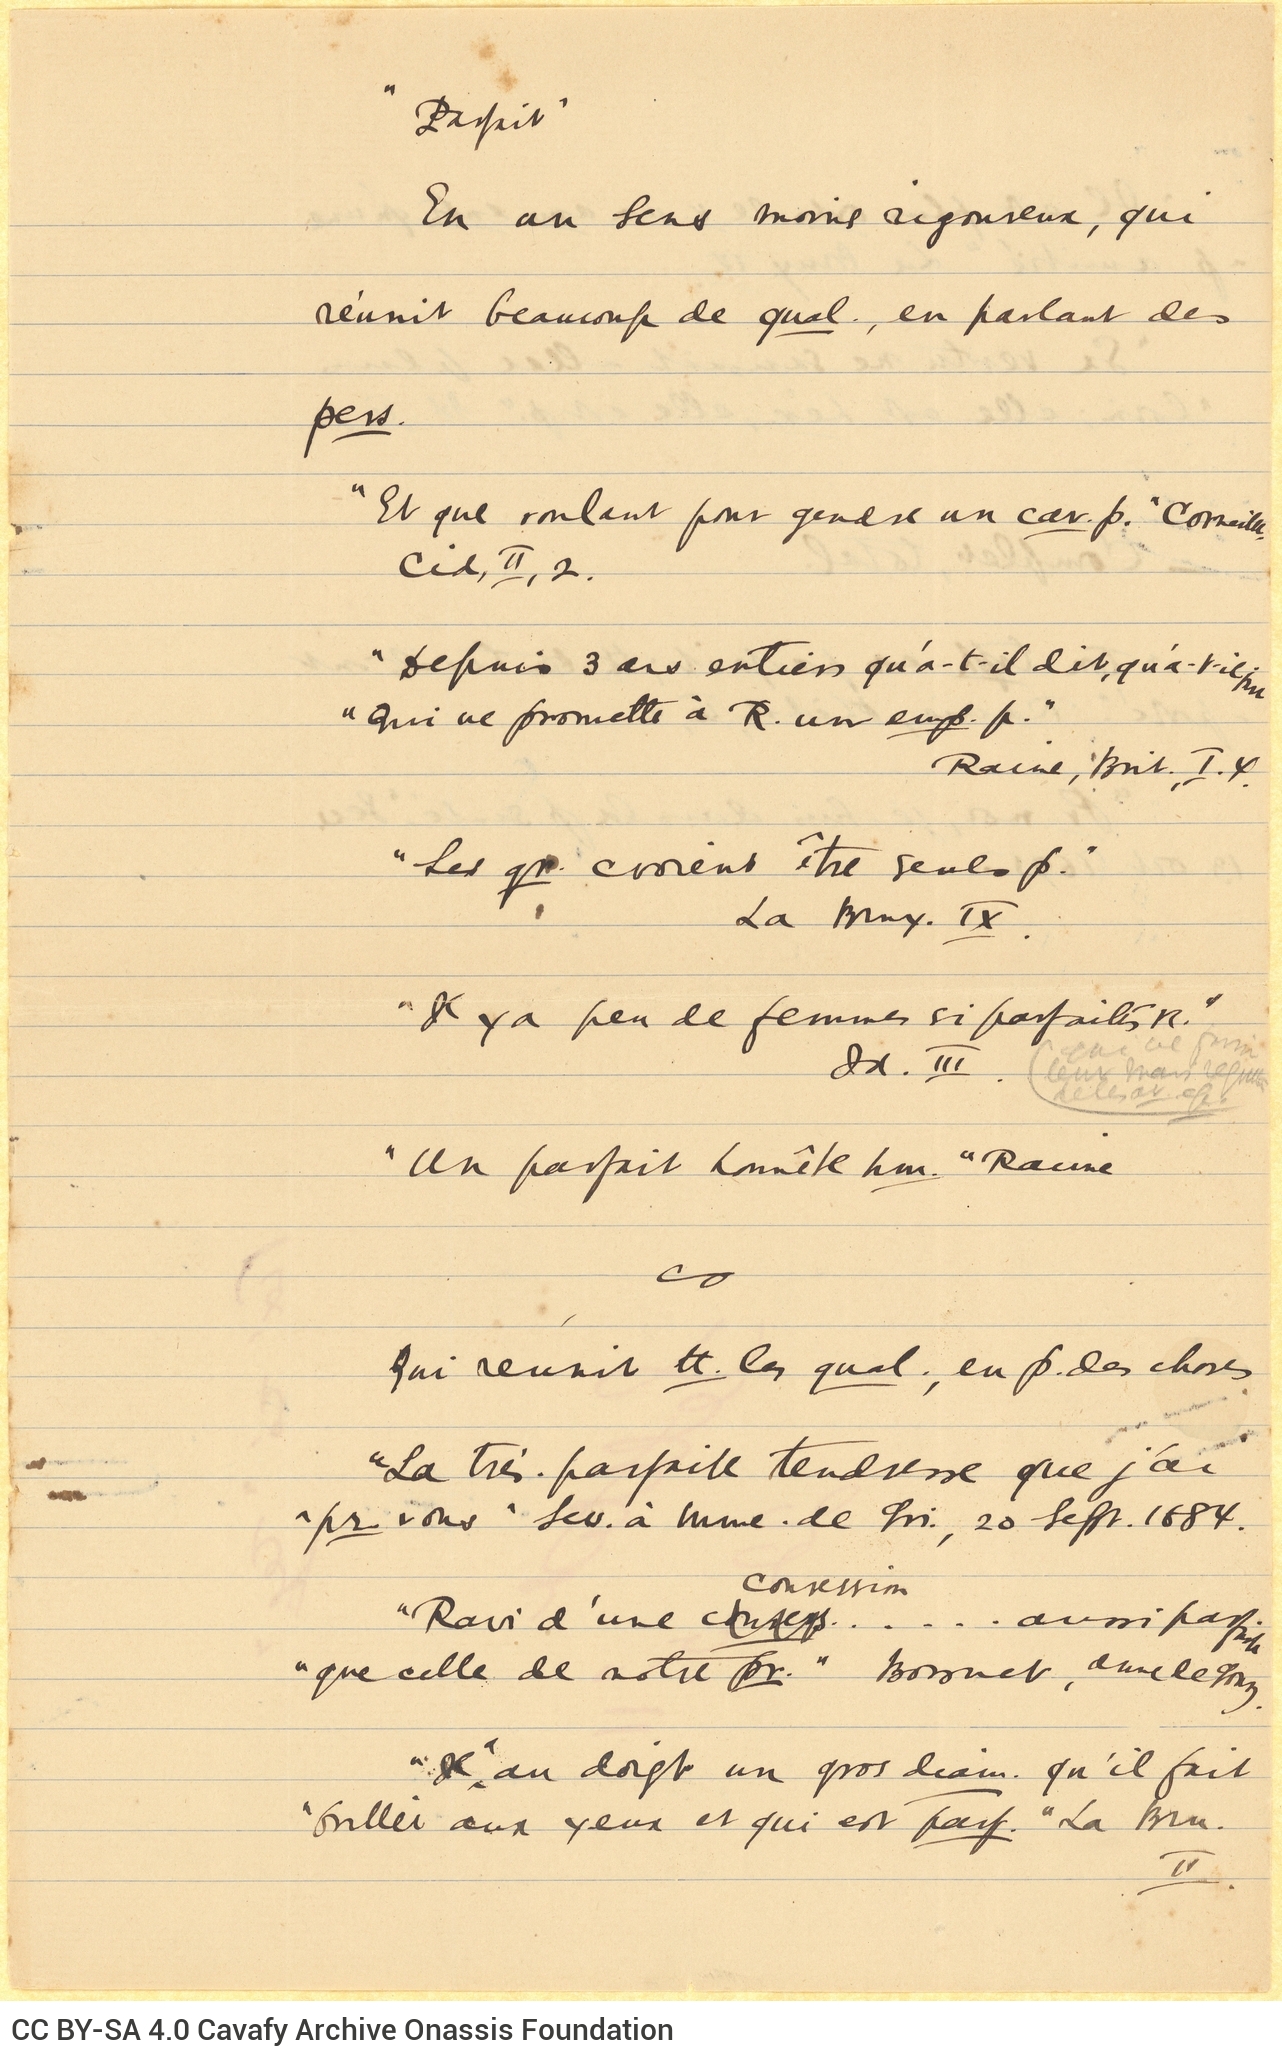 "Parfait"
En un sens moins rigoureux, qui
réunit beaucoup de qual., en parlant des
pers.
"Et que voulant pour gendre un cav. p." Corneille,
Cid, II, 2.
"Depuis 3 ans entiers qu'a-t-il dit, qu'a-t-il pu
"Qui ne promette à R. un emp. p."
Racine, Brit., I. 4.
"Les gr. croient être seuls p."
La Bruy. IX.
"Il y a peu de femmes si parfaites
Id. III. (qui ne
leur mari
de les av.
"Un parfait honnête hm." Racine
Qui réunit tt. les qual., en p. des choses
"La très-parfaite tendresse que j'ai
"pr. vous" Sév. à Mme. de Gri., 20 Sept. 1684.
"Ravi d'une ...... aussi parfaite
"que celle de notre pr." Bossuet, Anne de Gonz.
"Il a au doigt un gros diam. qu'il fait
"briller aux yeux et qui est parf." La Bru.
II.
CC BY-SA 4.0 Cavafy Archive Onassis Foundation